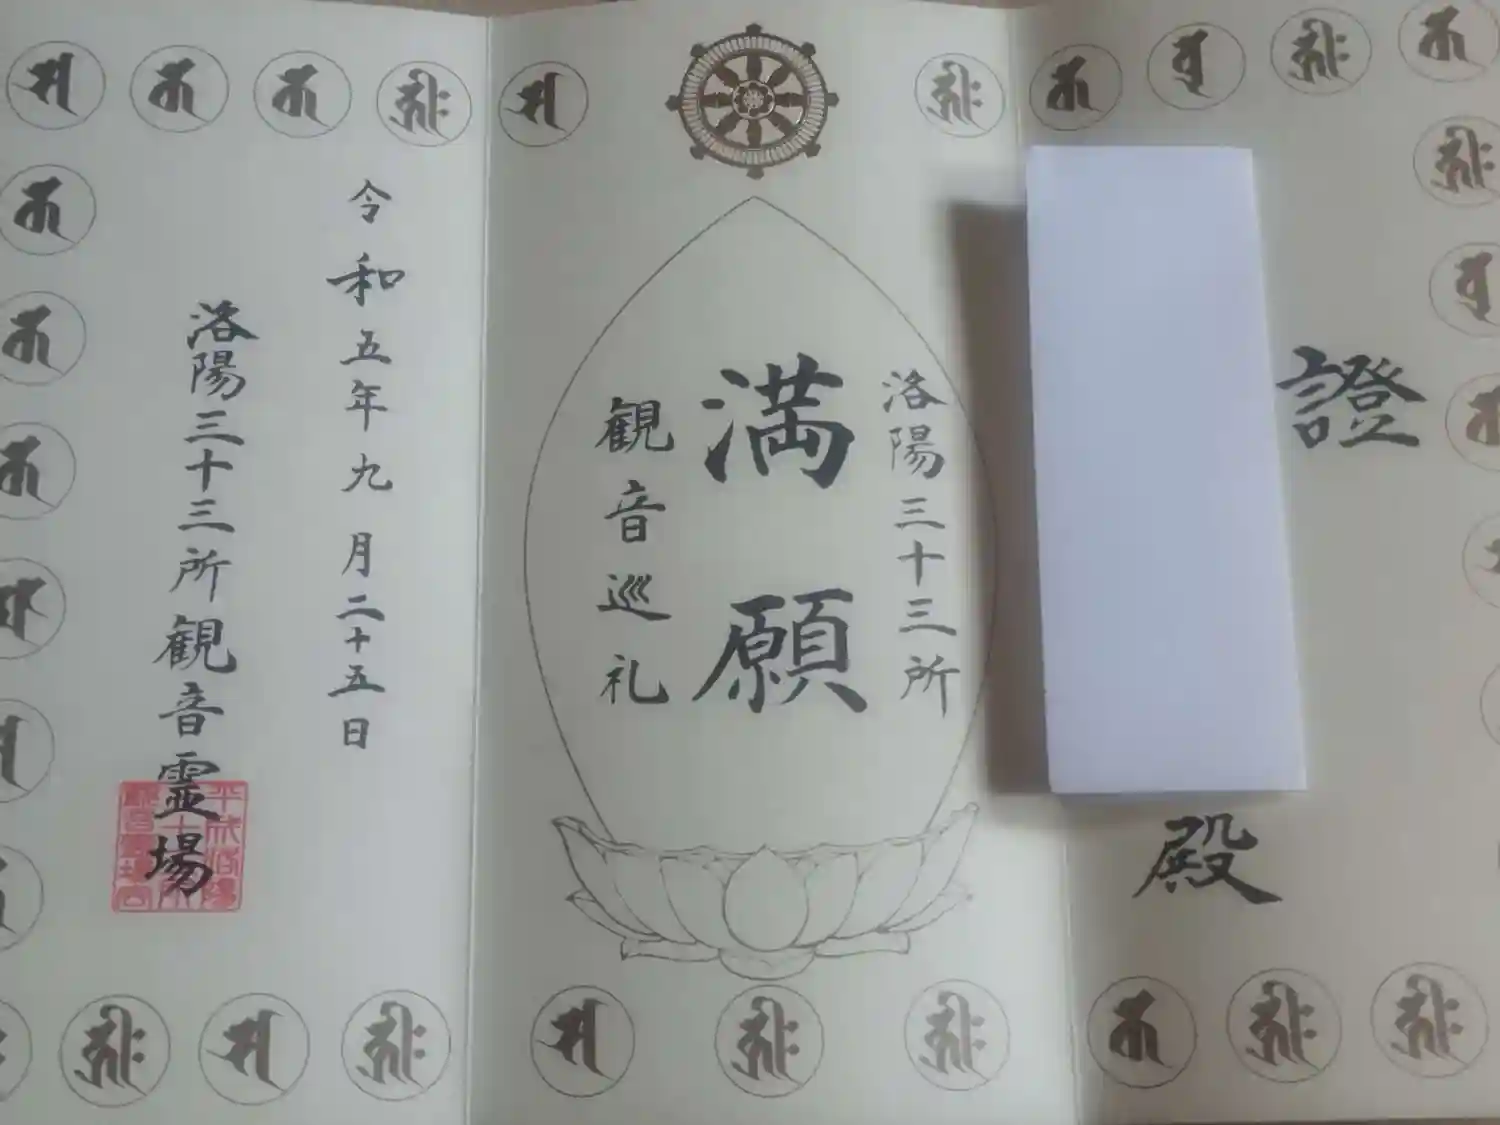 證
殿
洛陽三十三所
満願
観音巡礼
令和五年九月二十五日
洛陽三十三所観音霊場